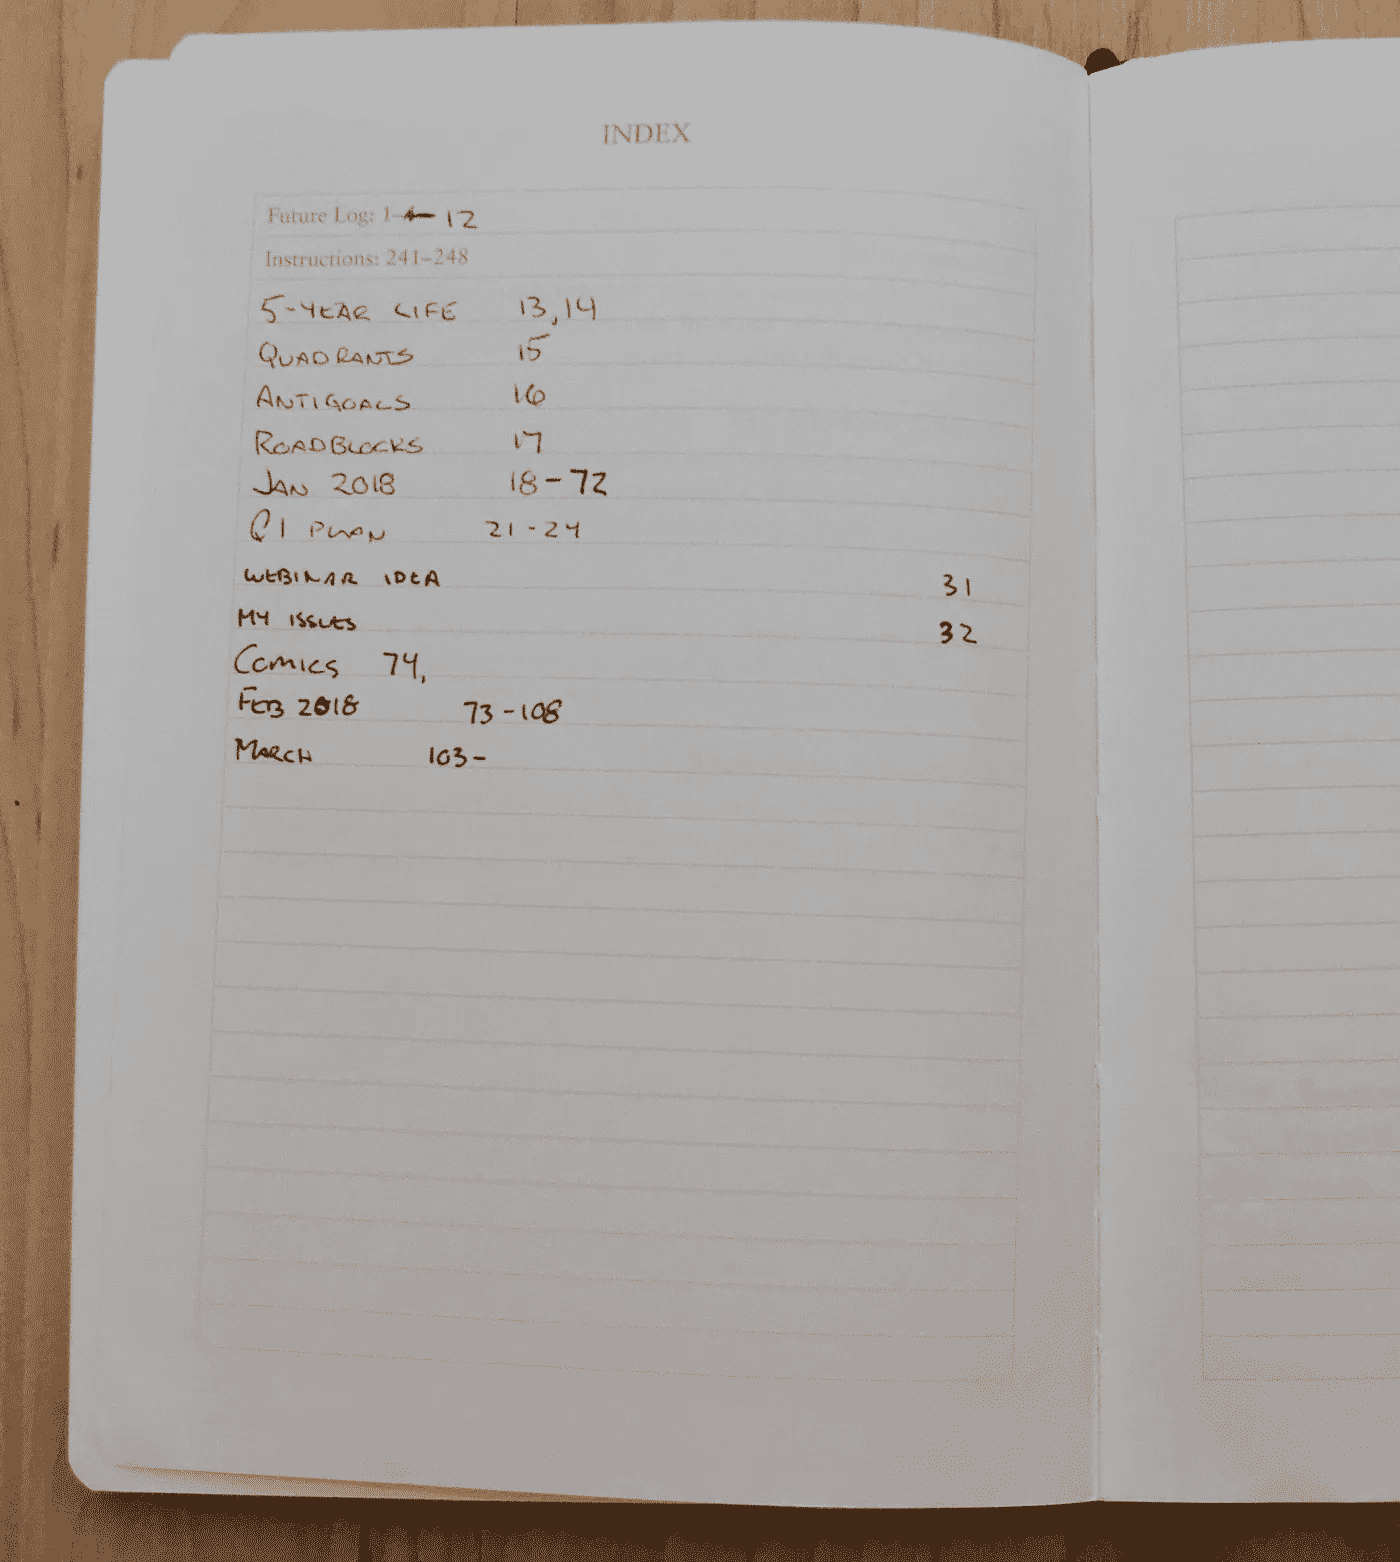 INDEX
Future Log: 1– 12
Instructions: 241–248
5-YEAR LIFE 13,14
QUADRANTS 15
ANTIGOALS 16
ROADBLOCKS 17
JAN 2018 18-72
Q1 PLAN 21-24
WEBINAR IDEA 31
MY ISSUES 32
COMICS 74,
FEB 2018 73-108
MARCH 103-